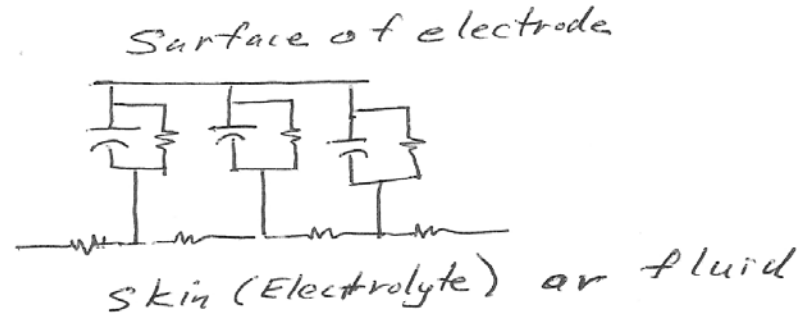 Surface of electrode
skin (Electrolyte) or fluid